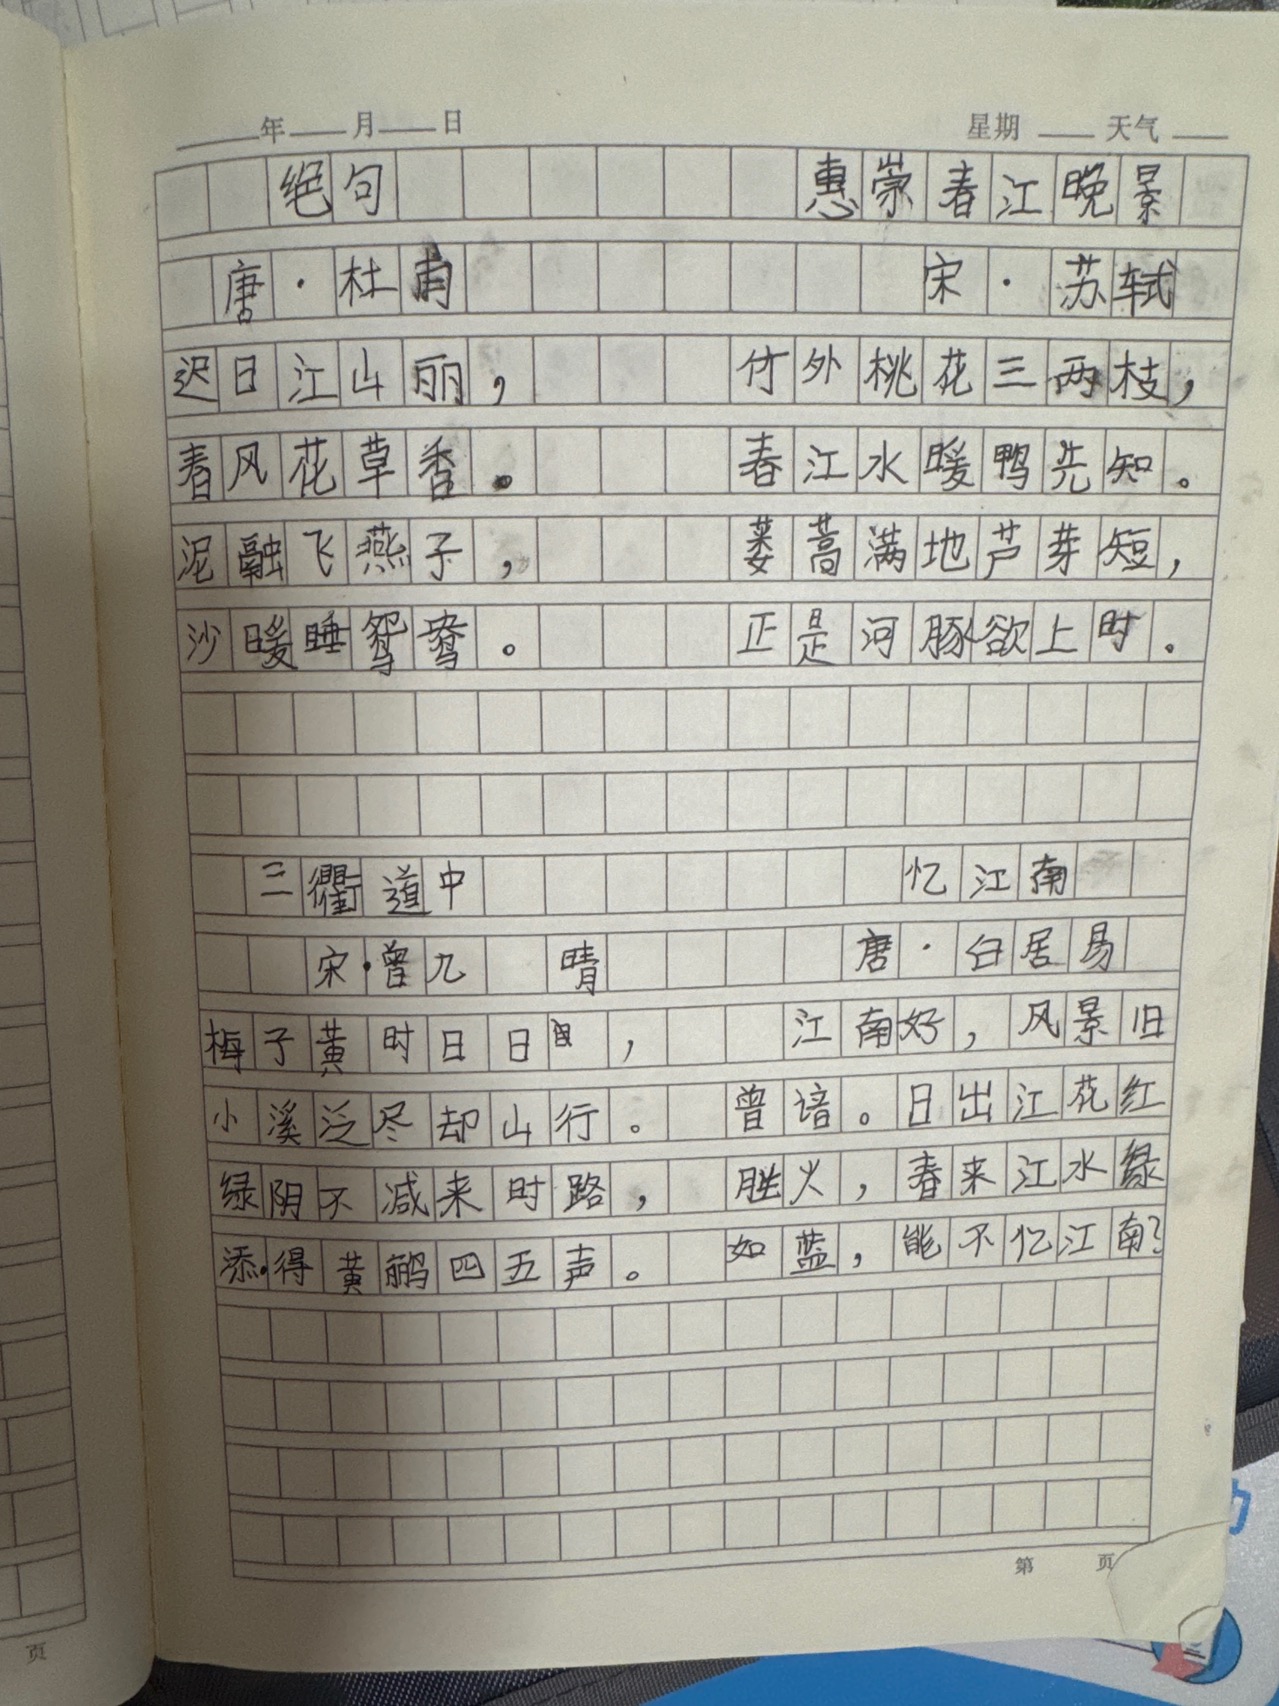 年 月 日 星期 天气
绝句
唐·杜甫
迟日江山丽，
春风花草香。
泥融飞燕子，
沙暖睡鸳鸯。
惠崇春江晚景
宋·苏轼
竹外桃花三两枝，
春江水暖鸭先知。
蒌蒿满地芦芽短，
正是河豚欲上时。
三衢道中
宋·曾九 晴
梅子黄时日日，
小溪泛尽却山行。
绿阴不减来时路，
添得黄鹂四五声。
忆江南
唐·白居易
江南好，风景旧
曾谙。日出江花红
胜火，春来江水绿
如蓝，能不忆江南？
第 页
页